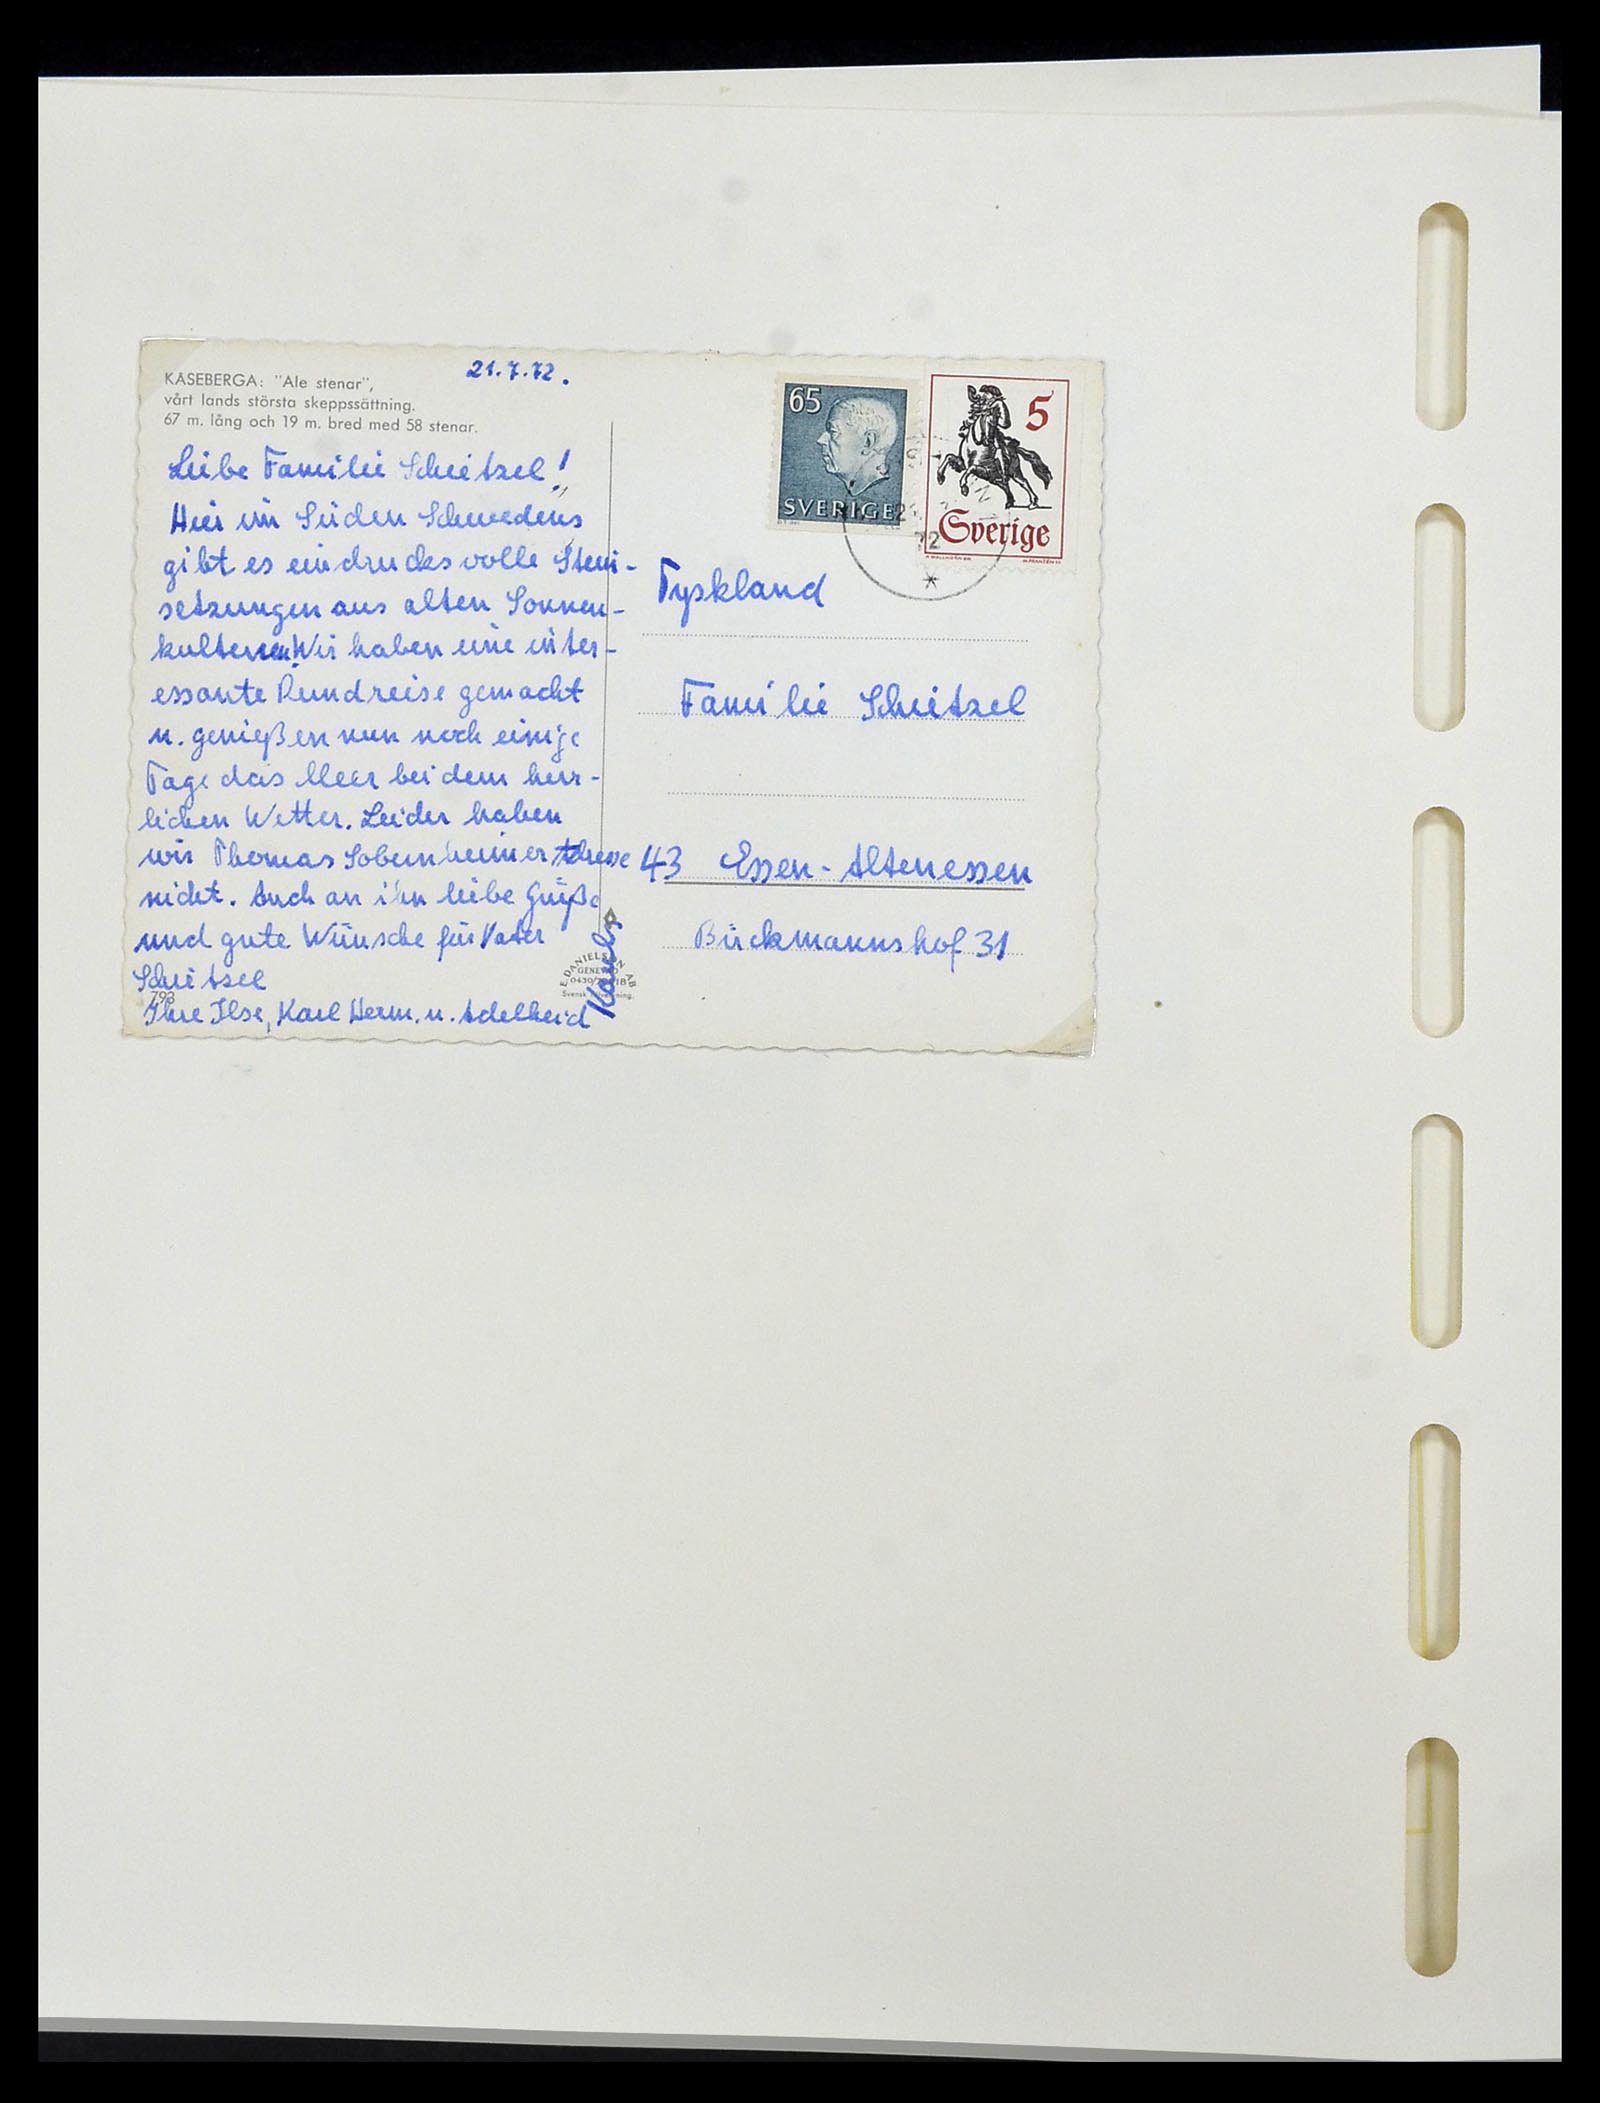 KÅSEBERGA: "Ale stenar",
vårt lands största skeppssättning.
67 m. lång och 19 m. bred med 58 stenar.
21.7.72.
Liebe Familie Scheitzel!
Hier im Süden Schwedens
gibt es eindrucksvolle Stein-
setzungen aus alten Sonnen-
kulturen. Wir haben eine inter-
essante Rundreise gemacht
u. genießen nun noch einige
Tage das Meer bei dem herr-
lichen Wetter. Leider haben
wir Thomas Sobernheimer Adresse
nicht. Auch an ihn liebe Grüße
und gute Wünsche für Vater
Scheitzel
Ihre Ilse, Karl Herm. u. Adelheid
793
E. DANIELSON AB
GENEVAD
Svensk
65
SVERIGE
5
Sverige
72
Tyskland
Familie Scheitzel
43 Essen-Altenessen
Bückmannshof 31